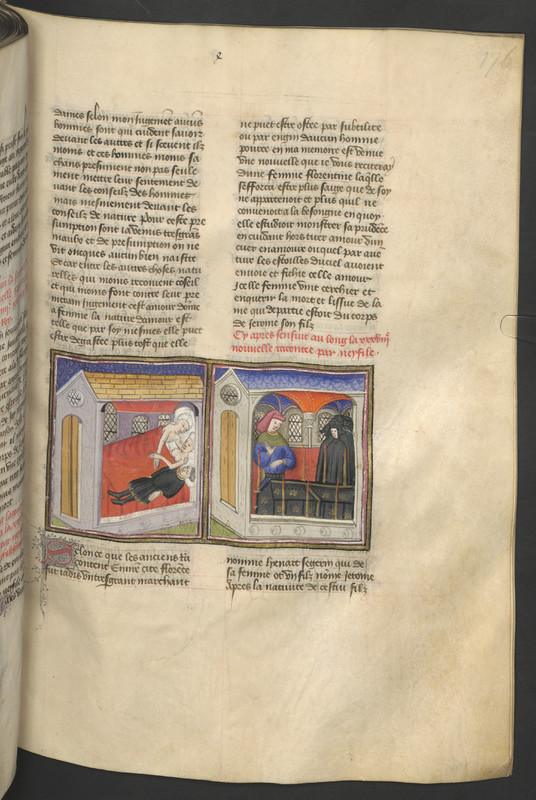 176
dames selon mon jugemēt aucūs
hommes sont qui cuident savoir
devant les autres et si scevent ilz
moins et ces hommes moins sa
chans presument non pas seule
ment mettre leur sentement de
vant les conseilz des hommes
mais mesmement devant les
conseilz de nature Pour ceste pre
sumption sont ia venus tresgrās
maulx et de presumption on ne
vit oncques aucun bien naistre
Et car entre les autres choses natu
relles qui moins recoivent cōseil
et qui moins sont contre leur pre
merain jugement cest amour dōme
a femme la nature damour est
telle que par soy mesmes elle puet
estre degastee plus tost que elle
ne puet estre ostee par subtilite
ou par engin daucun homme
pource en ma memoire est venue
une nouvelle que ie vous reciteray
dune femme florentine laqlle
sefforca estre plus saige que de soy
ne appartenoit et plus quil ne
convenoit a la besongne en quoy
elle estudioit monstrer sa prudēce
en cuidant hors tirer amour dun
cuer enamoure ouquel par aue
ture les estoilles du ciel avoient
envoie et fichie celle amour
Icelle femme vint cercher et
enquerir la mort et lissue de la
me qui departie estoit du corps
de Jerome son filz
Cy apres sensuit au long la xxxviijᵉ
nouvelle racontee par neyfile.
Selonce que les anciens nr̄
content En une cite florēce
fut iadis un tresgrant marchant
nomme lienart segeri qui de
sa femme ot un filz nōme Jerome
Apres la nativite de cestui filz